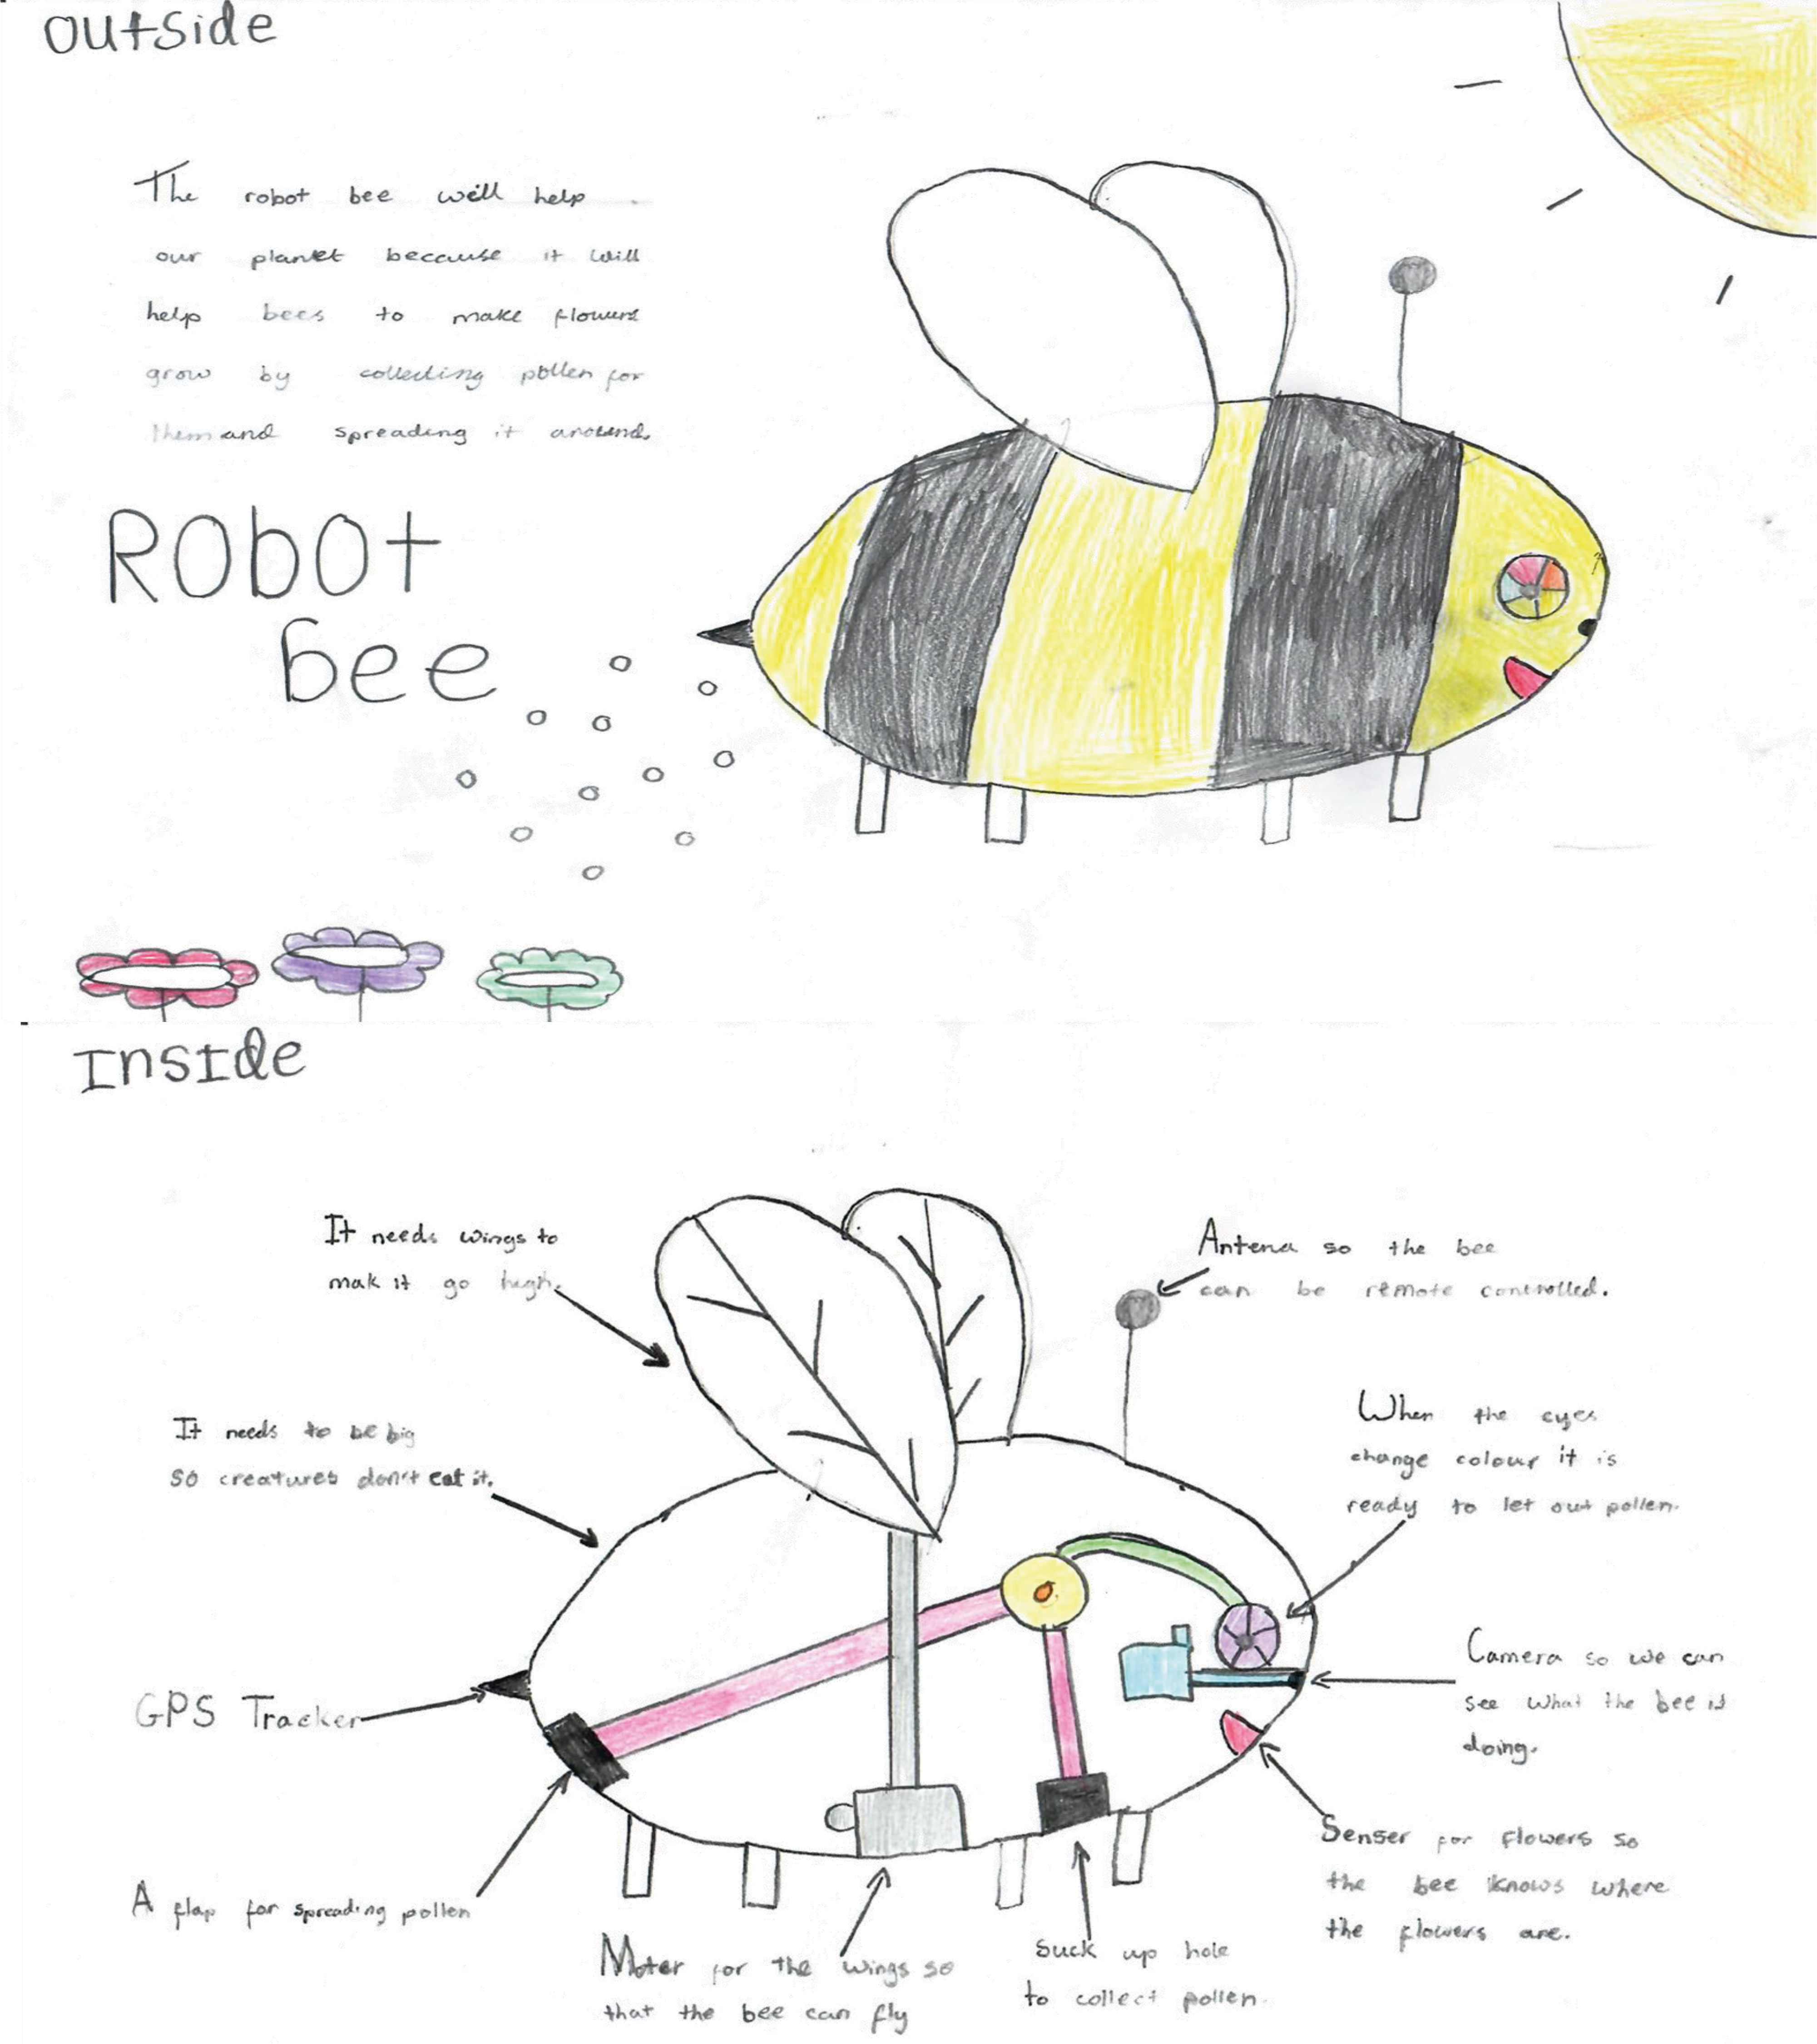 Outside
The robot bee will help
our planet because it will
help bees to make flowers
grow by collecting pollen for
them and spreading it around.
Robot
bee
Inside
It needs wings to
mak it go high.
Antena so the bee
can be remote controlled.
When the eyes
change colour it is
ready to let out pollen.
It needs to be big
so creatures don't eat it.
Camera so we can
see what the bee is
doing.
GPS Tracker
Senser for flowers so
the bee knows where
the flowers are.
A flap for spreading pollen
Moter for the wings so
that the bee can fly
Suck up hole
to collect pollen.